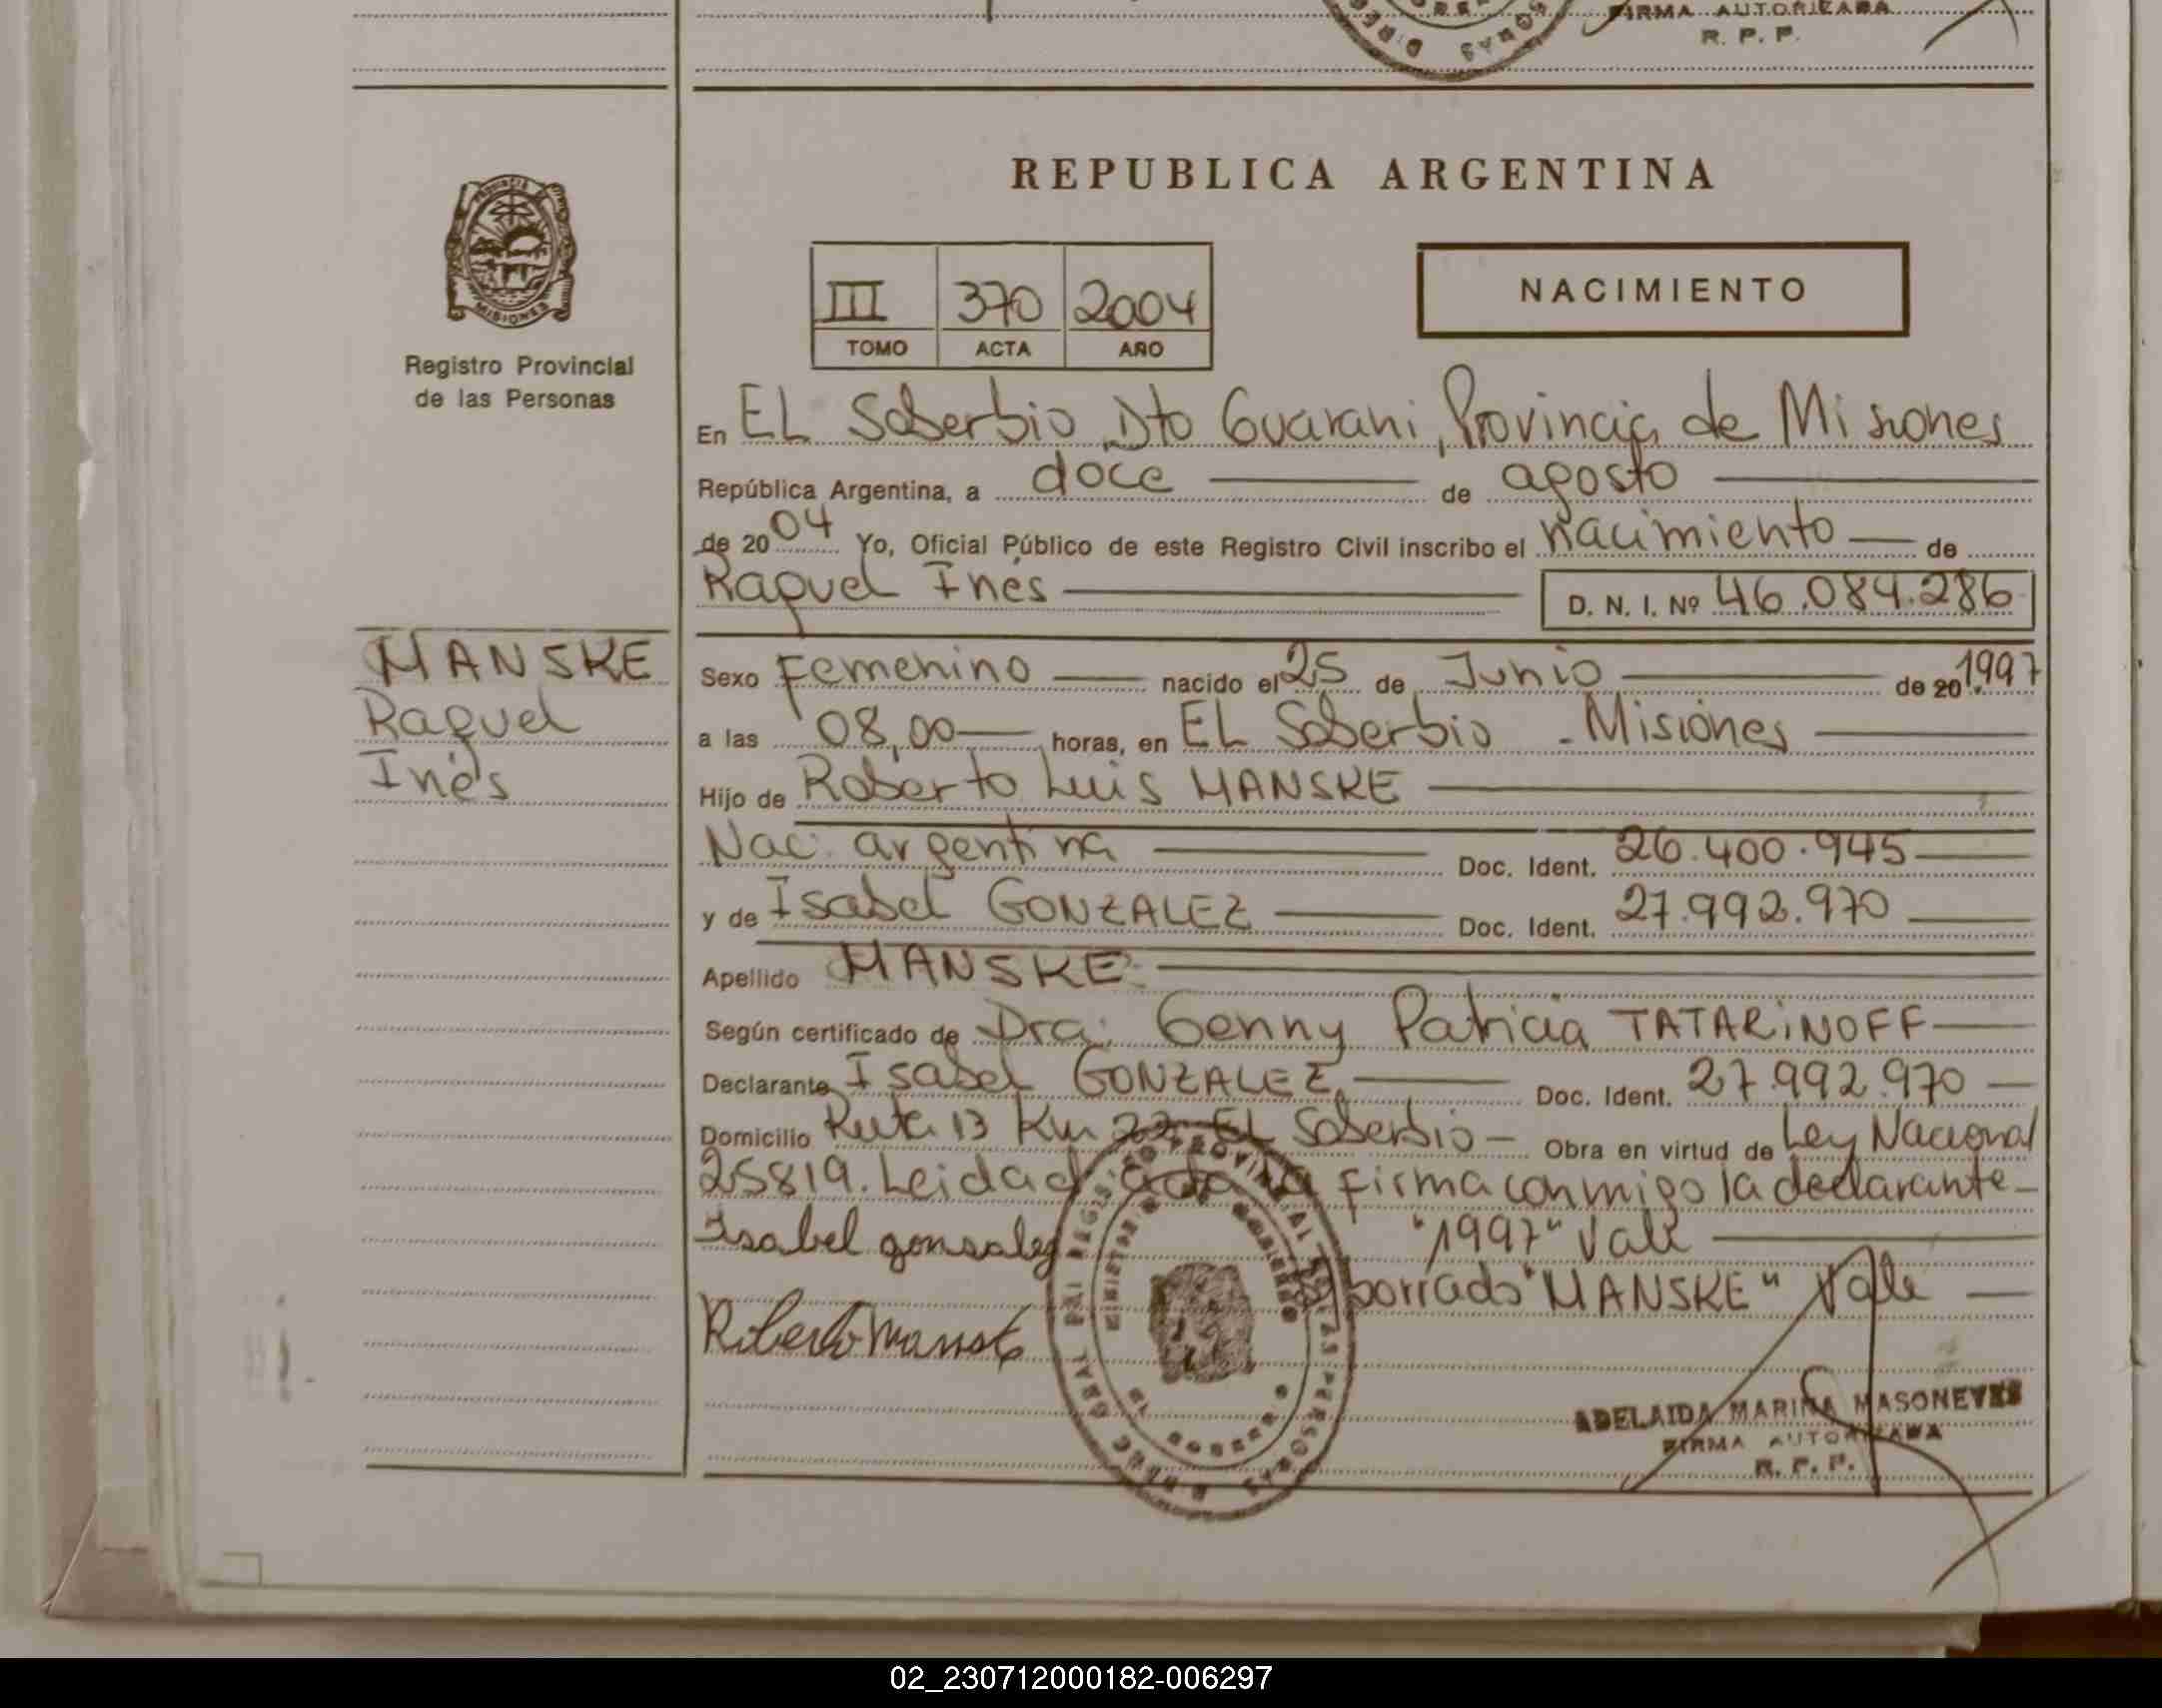 FIRMA AUTORIZADA
R. P. P.
PROVINCIA
MISIONES
Registro Provincial
de las Personas
REPUBLICA ARGENTINA
III 370 2004
TOMO ACTA AÑO
NACIMIENTO
En EL Soberbio, Dto Guarani, Provincia de Misiones
República Argentina, a doce de agosto
de 20 04 Yo, Oficial Público de este Registro Civil inscribo el nacimiento de
Raquel Inés D. N. I. Nº 46.084.286
MANSKE
Raquel
Inés
Sexo Femenino nacido el 25 de Junio de 20 1997
a las 08,00 horas, en EL Soberbio - Misiones
Hijo de Roberto Luis MANSKE
Nac. argentina Doc. Ident. 26.400.945
y de Isabel GONZALEZ Doc. Ident. 27.992.970
Apellido MANSKE
Según certificado de Dra. Genny Patricia TATARiNOFF
Declarante Isabel GONZALEZ Doc. Ident. 27.992.970
Domicilio Ruta 13 Km 22 EL Soberbio - Obra en virtud de Ley Nacional
25819. Leida el acta la firma conmigo la declarante
Isabel gonzalez "1997" Vale
borrado "MANSKE" Vale
Roberto Manske
ADELAIDA MARINA MASONEVES
FIRMA AUTORIZADA
R. P. P.
02_230712000182-006297